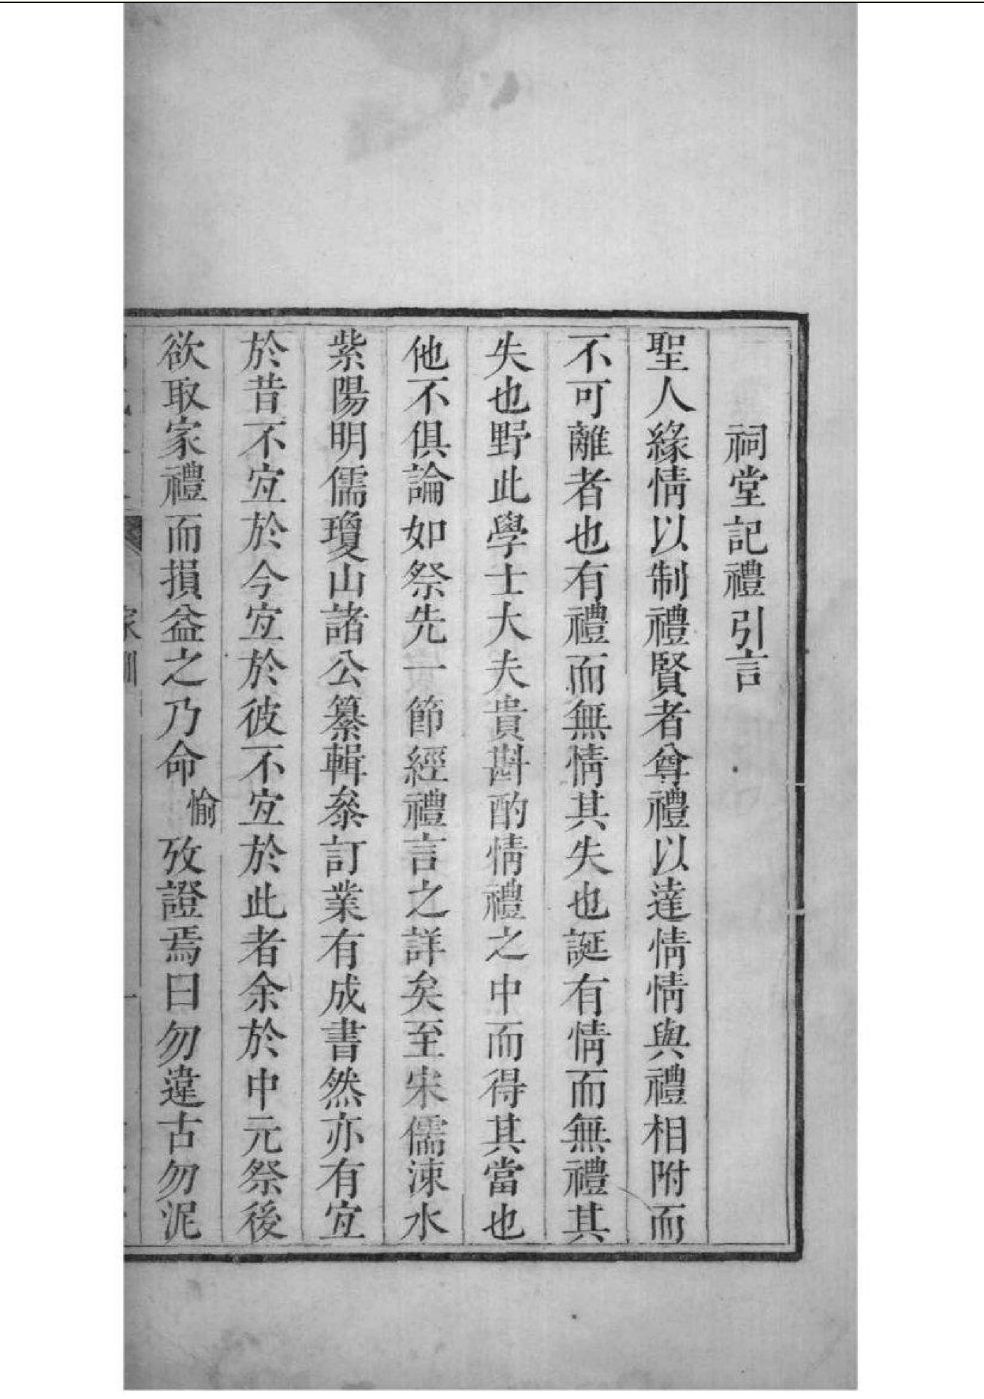 祠堂記禮引言
聖人緣情以制禮賢者尊禮以達情情與禮相附而
不可離者也有禮而無情其失也誕有情而無禮其
失也野此學士大夫貴斟酌情禮之中而得其當也
他不俱論如祭先一節經禮言之詳矣至宋儒涑水
紫陽明儒瓊山諸公纂輯叅訂業有成書然亦有宜
於昔不宜於今宜於彼不宜於此者余於中元祭後
欲取家禮而損益之乃命愉攷證焉曰勿違古勿泥
家訓